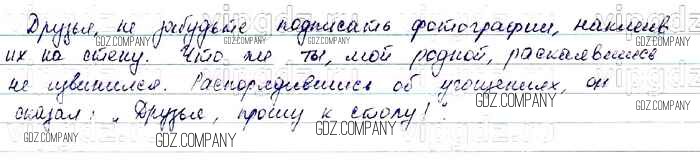 Друзья, не забудьте подписать фотографии, наклеив
их на стену. Что же ты, мой родной, раскаявшись
не извинился. Распорядившись об угощениях, он
сказал: „Друзья, прошу к столу!"
GDZ.COMPANY GDZ.COMPANY GDZ.COMPANY GDZ.COMPANY
GDZ.COMPANY GDZ.COMPANY GDZ.COMPANY GDZ.COMPANY